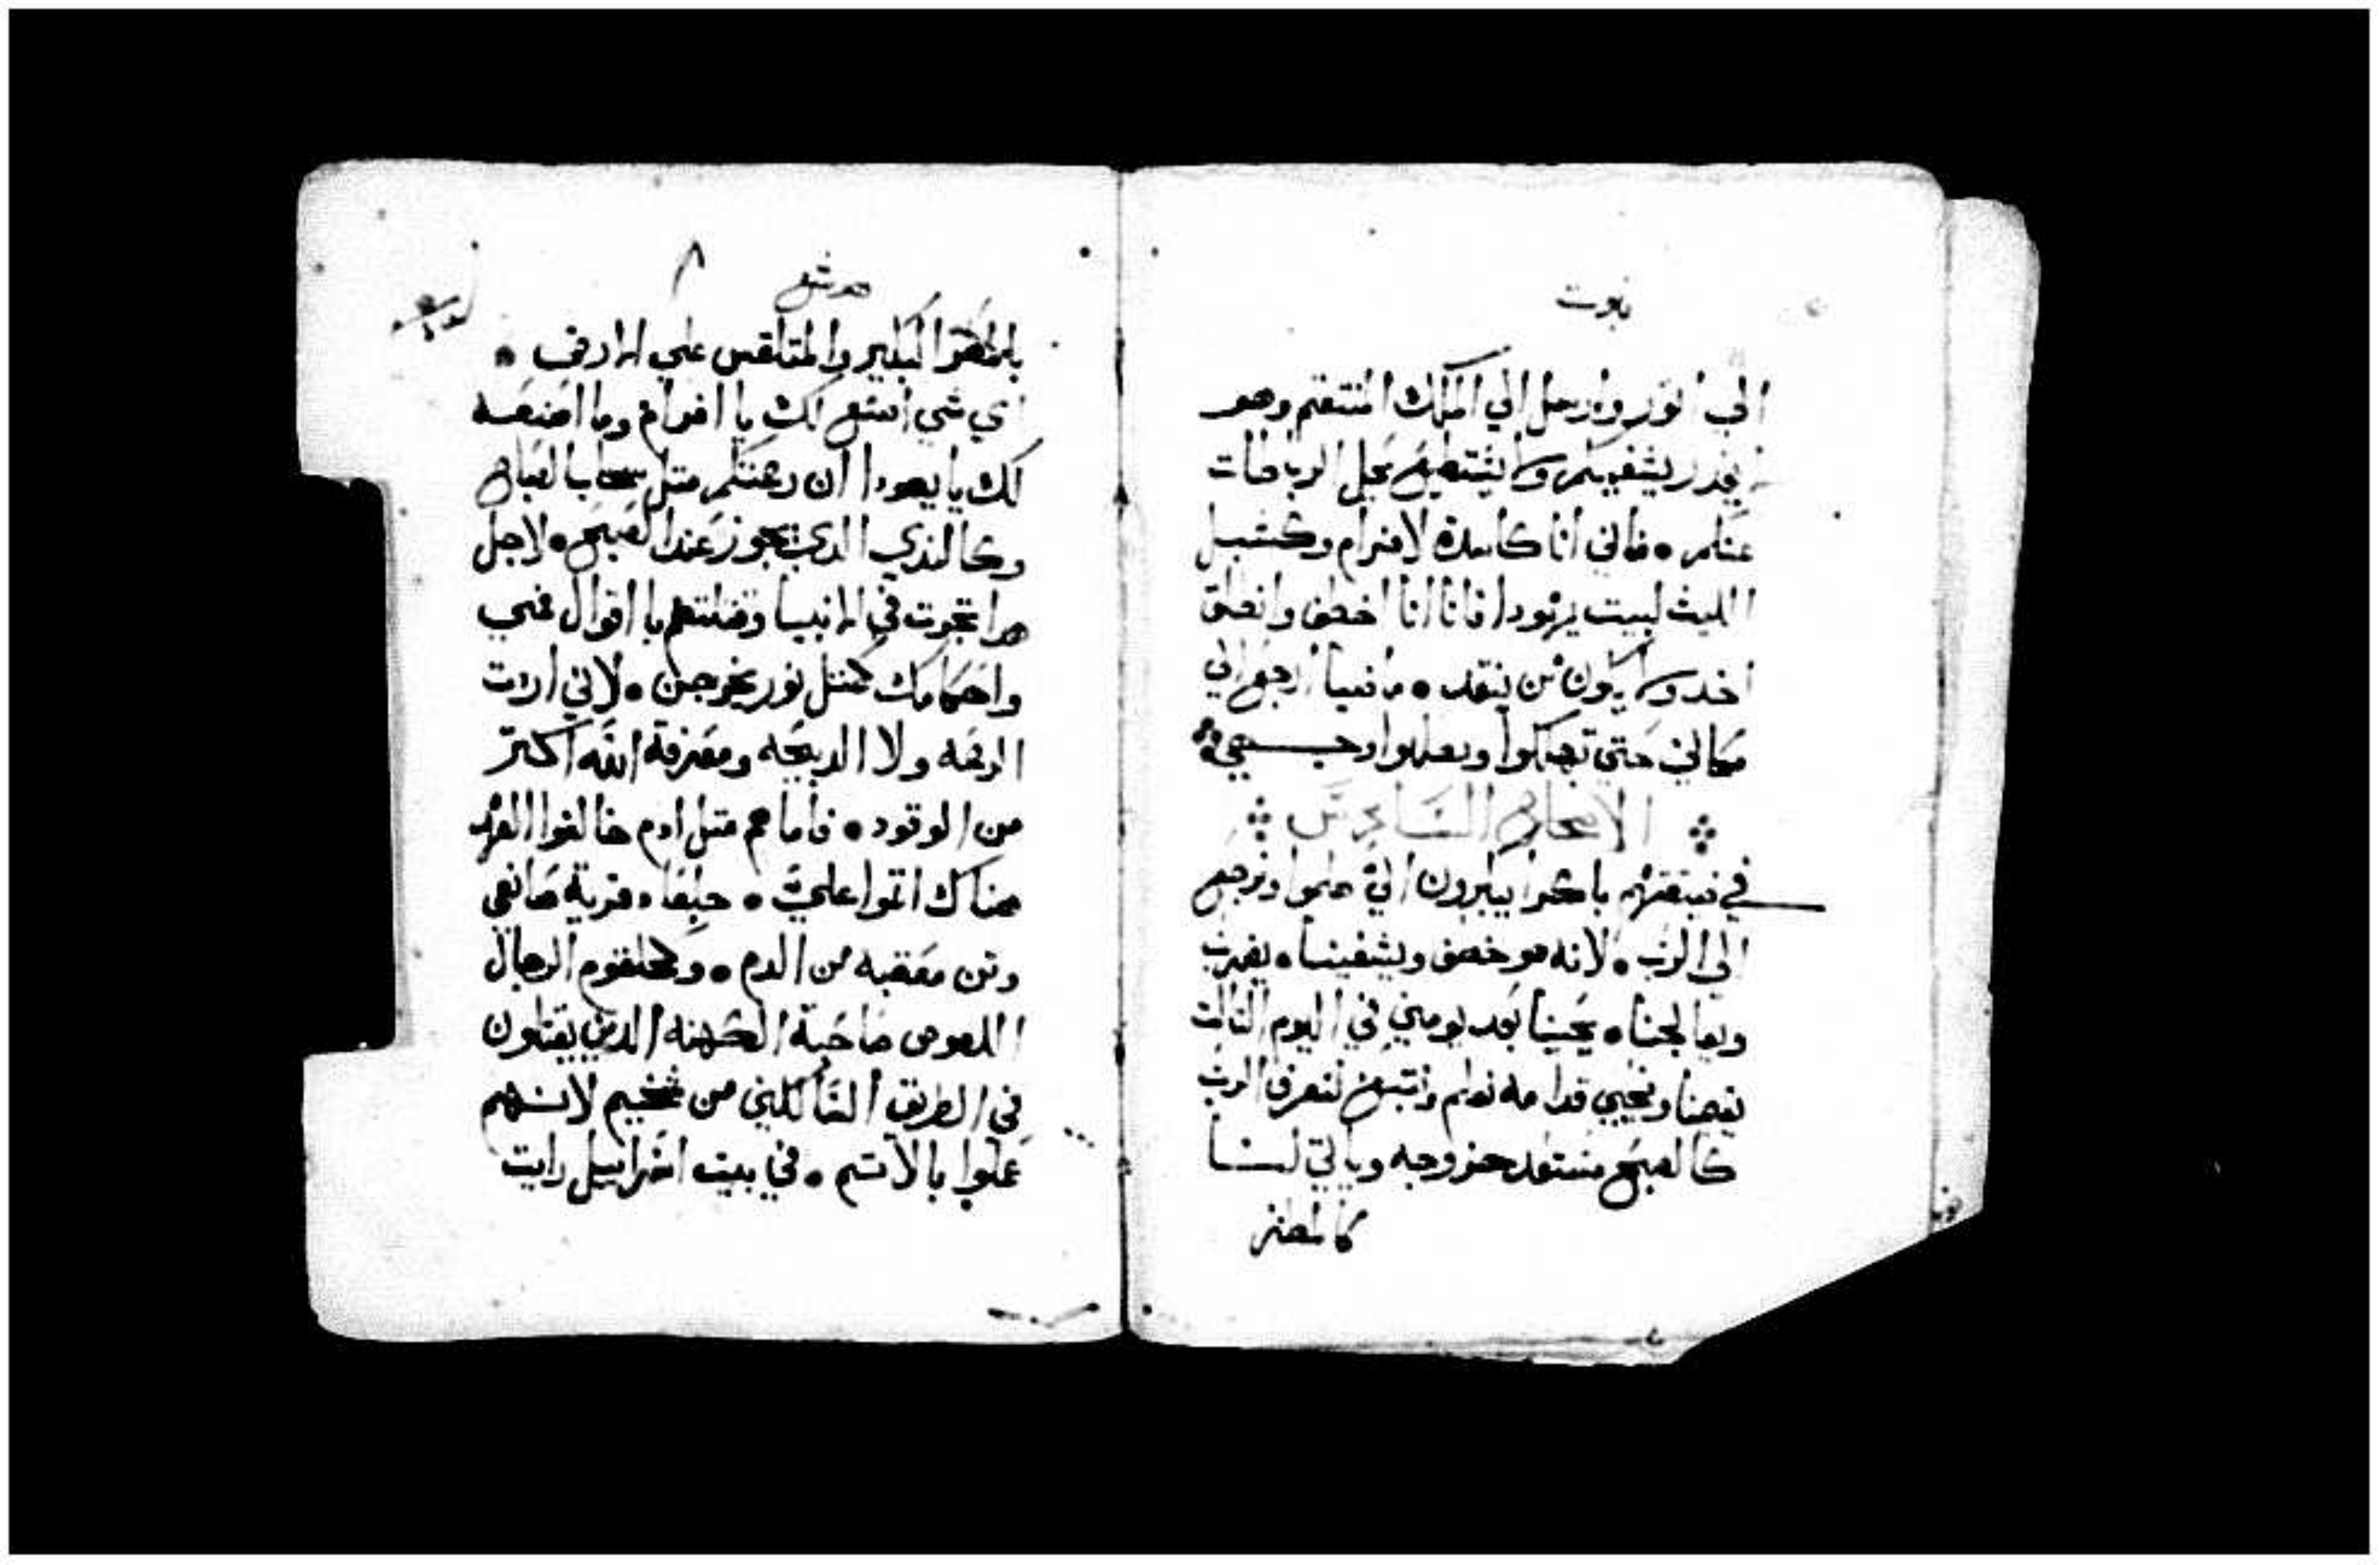 نبوت
الي اتور وارسل الي الملك المنتقم وهو
يقدر يشفيكم ولا يستطيع يحل الرباطات
عنكم • فاني انا كاسدة لافرام وكشبل
الليث لبيت يهودا فانا انا اخطف وانطلق
اخد ولا يكون من ينقد • مافيا ارجع الي
مكاني حتي تهلكوا ويطلبوا وجهي
الاصحاح السادس
في ضيقتهم باكرا يبكرون الي هلموا ونرجع
الي الرب • لانه هو خطف ويشفينا • يضرب
ويعالجنا • يحيينا بعد يومين في اليوم التالت
يقيمنا ونحيي قدامه نعلم ونتبع لنعرف الرب
كالصبح مستعد خروجه وياتي لنا
كالمطر
هوشع
٨
بالمطر البكير والمتلقس علي الارض •
اي شي اصنع لك يا افرام وما اصنعه
لك يا يهودا ان رحمتكم متل سحاب الصباح
وكالندي الدي يجوز عند الصبح • لاجل
هدا نجرت في الانبيا وقتلتهم باقوال فمي
واحكامك كمتل نور يخرجن • لاني اردت
الرحمه ولا الدبيحه ومعرفة الله اكتر
من الوقود • فاما هم متل ادم خالفوا العهد
هناك اتموا علي • جلعاد قرية صانعي
وتن معقبه من الدم • وكحلقوم الرجال
اللصوص صاحبة الكهنه الدين يقتلون
في الطريق السالكين من شخيم لانهم
عملوا بالاتم • في بيت اسراييل رايت